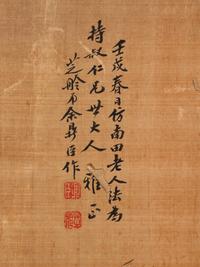 壬戌春日仿南田老人法為
持叔仁兄世大人雅正
芝舲弟余鼎臣作